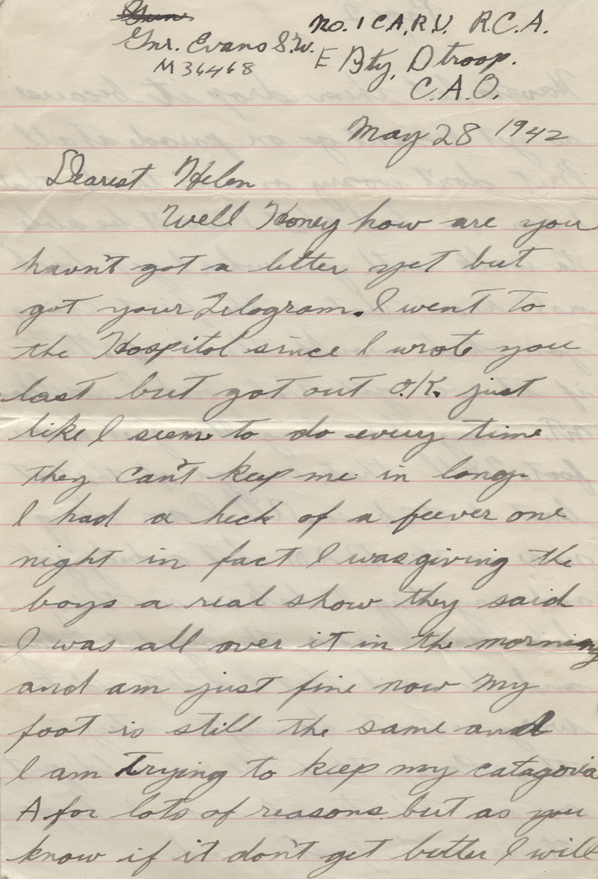 No. 1 C.A.R.U. R.C.A.
Gnr. Evans S.W. E Bty, D troop.
M36468 C.A.O.
May 28 1942
Dearest Helen
Well Honey how are you
havn't got a letter yet but
got your Telogram. I went to
the Hospitol since I wrote you
last but got out O.K. just
like I seem to do every time
they can't keep me in long.
I had a heck of a feever one
night in fact I was giving the
boys a real show they said
I was all over it in the morning
and am just fine now My
foot is still the same and
I am trying to keep my catagoria
A for lots of reasons but as you
know if it don't get better I will